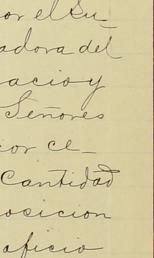 or el Su-
adora del
acio y
Señores
por ce-
Cantidad
osicion
aficio